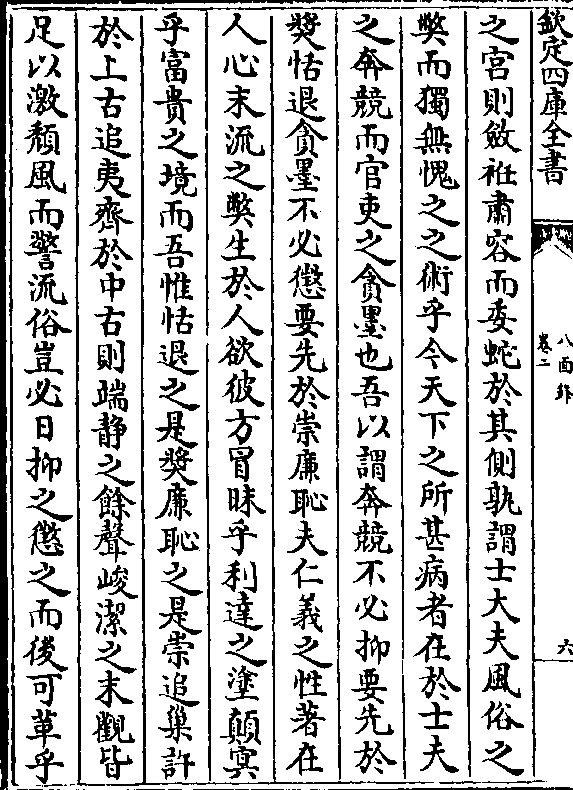 欽定四庫全書
八面鋒
卷二
六
之宮則斂袵肅容而委蛇於其側孰謂士大夫風俗之
獘而獨無愧之之術乎今天下之所甚病者在於士夫
之奔競而官吏之貪墨也吾以謂奔競不必抑要先於
奬恬退貪墨不必懲要先於崇廉恥夫仁義之性著在
人心末流之獘生於人欲彼方冒昧乎利達之塗顛冥
乎富貴之境而吾惟恬退之是奬廉恥之是崇追巢許
於上古追夷齊於中古則端静之餘聲峻潔之末觀皆
足以激頽風而警流俗豈必日抑之懲之而後可革乎